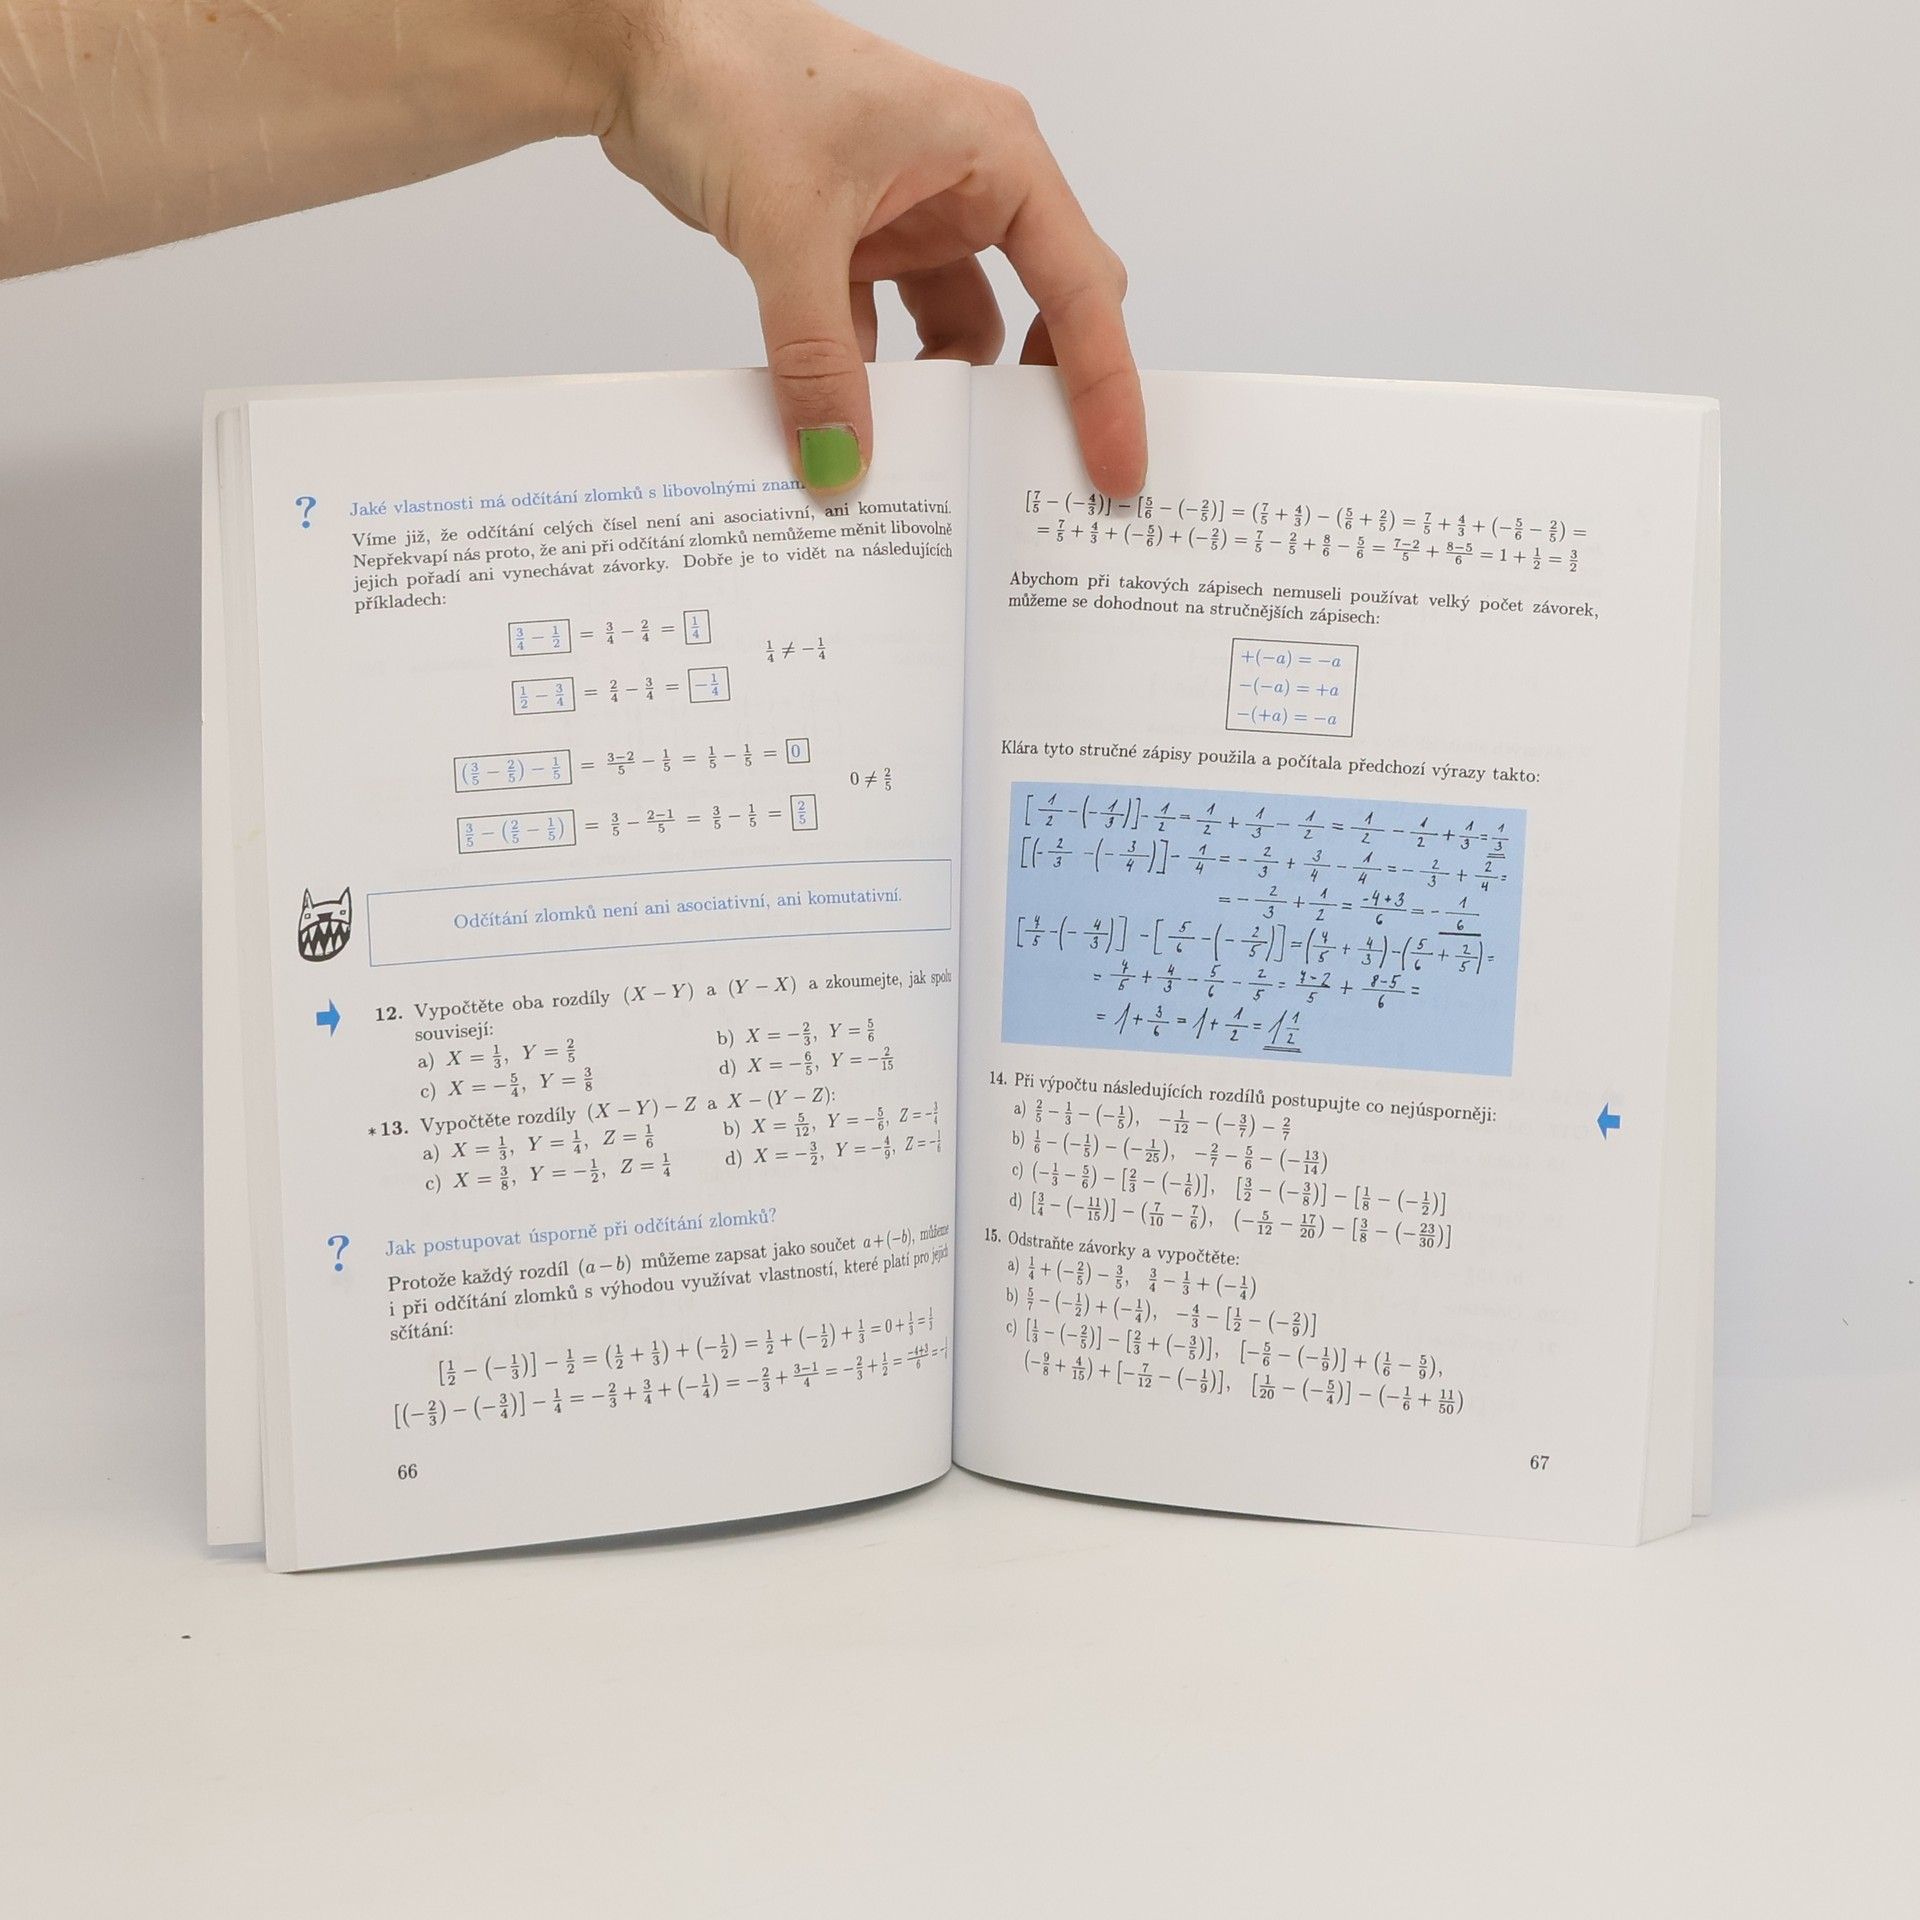 ? Jaké vlastnosti má odčítání zlomků s libovolnými
Víme již, že odčítání celých čísel není ani asociativní, ani komutativní.
Nepřekvapí nás proto, že ani při odčítání zlomků nemůžeme měnit libovolně
jejich pořadí ani vynechávat závorky. Dobře je to vidět na následujících
příkladech:
3/4 − 1/2 = 3/4 − 2/4 = 1/4
1/4 ≠ −1/4
1/2 − 3/4 = 2/4 − 3/4 = −1/4
(3/5 − 2/5) − 1/5 = 3−2/5 − 1/5 = 1/5 − 1/5 = 0
0 ≠ 2/5
3/5 − (2/5 − 1/5) = 3/5 − 2−1/5 = 3/5 − 1/5 = 2/5
Odčítání zlomků není ani asociativní, ani komutativní.
12. Vypočtěte oba rozdíly (X − Y) a (Y − X) a zkoumejte, jak spolu
souvisejí:
a) X = 1/3, Y = 2/5 b) X = −2/3, Y = 5/6
c) X = −5/4, Y = 3/8 d) X = −6/5, Y = −2/15
*13. Vypočtěte rozdíly (X − Y) − Z a X − (Y − Z):
a) X = 1/3, Y = 1/4, Z = 1/6 b) X = 5/12, Y = −5/6, Z = −3/4
c) X = 3/8, Y = −1/2, Z = 1/4 d) X = −3/2, Y = −4/9, Z = −1/6
? Jak postupovat úsporně při odčítání zlomků?
Protože každý rozdíl (a − b) můžeme zapsat jako součet a + (−b), můžeme
i při odčítání zlomků s výhodou využívat vlastností, které platí pro jejich
sčítání:
[1/2 − (−1/3)] − 1/2 = (1/2 + 1/3) + (−1/2) = 1/2 + (−1/2) + 1/3 = 0 + 1/3 = 1/3
[(−2/3) − (−3/4)] − 1/4 = −2/3 + 3/4 + (−1/4) = −2/3 + 3−1/4 = −2/3 + 1/2 = −4+3/6 =
66
[7/5 − (−4/3)] − [5/6 − (−2/5)] = (7/5 + 4/3) − (5/6 + 2/5) = 7/5 + 4/3 + (−5/6 − 2/5) =
= 7/5 + 4/3 + (−5/6) + (−2/5) = 7/5 − 2/5 + 8/6 − 5/6 = 7−2/5 + 8−5/6 = 1 + 1/2 = 3/2
Abychom při takových zápisech nemuseli používat velký počet závorek,
můžeme se dohodnout na stručnějších zápisech:
+(−a) = −a
−(−a) = +a
−(+a) = −a
Klára tyto stručné zápisy použila a počítala předchozí výrazy takto:
[1/2 − (−1/3)] − 1/2 = 1/2 + 1/3 − 1/2 = 1/2 − 1/2 + 1/3 = 1/3
[(−2/3 − (−3/4)] − 1/4 = −2/3 + 3/4 − 1/4 = −2/3 + 2/4 =
= −2/3 + 1/2 = −4+3/6 = −1/6
[7/5 − (−4/3)] − [5/6 − (−2/5)] = (7/5 + 4/3) − (5/6 + 2/5) =
= 7/5 + 4/3 − 5/6 − 2/5 = 7−2/5 + 8−5/6 =
= 1 + 3/6 = 1 + 1/2 = 1 1/2
14. Při výpočtu následujících rozdílů postupujte co nejúsporněji:
a) 2/5 − 1/3 − (−1/5), −1/12 − (−3/7) − 2/7
b) 1/6 − (−1/5) − (−1/25), −2/7 − 5/6 − (−13/14)
c) (−1/3 − 5/6) − [2/3 − (−1/6)], [3/2 − (−3/8)] − [1/8 − (−1/2)]
d) [3/4 − (−11/15)] − (7/10 − 7/6), (−5/12 − 17/20) − [3/8 − (−23/30)]
15. Odstraňte závorky a vypočtěte:
a) 1/4 + (−2/5) − 3/5, 3/4 − 1/3 + (−1/4)
b) 5/7 − (−1/2) + (−1/4), −4/3 − [1/2 − (−2/9)]
c) [1/3 − (−2/5)] − [2/3 + (−3/5)], [−5/6 − (−1/9)] + (1/6 − 5/9),
(−9/8 + 4/15) + [−7/12 − (−1/9)], [1/20 − (−5/4)] − (−1/6 + 11/50)
67